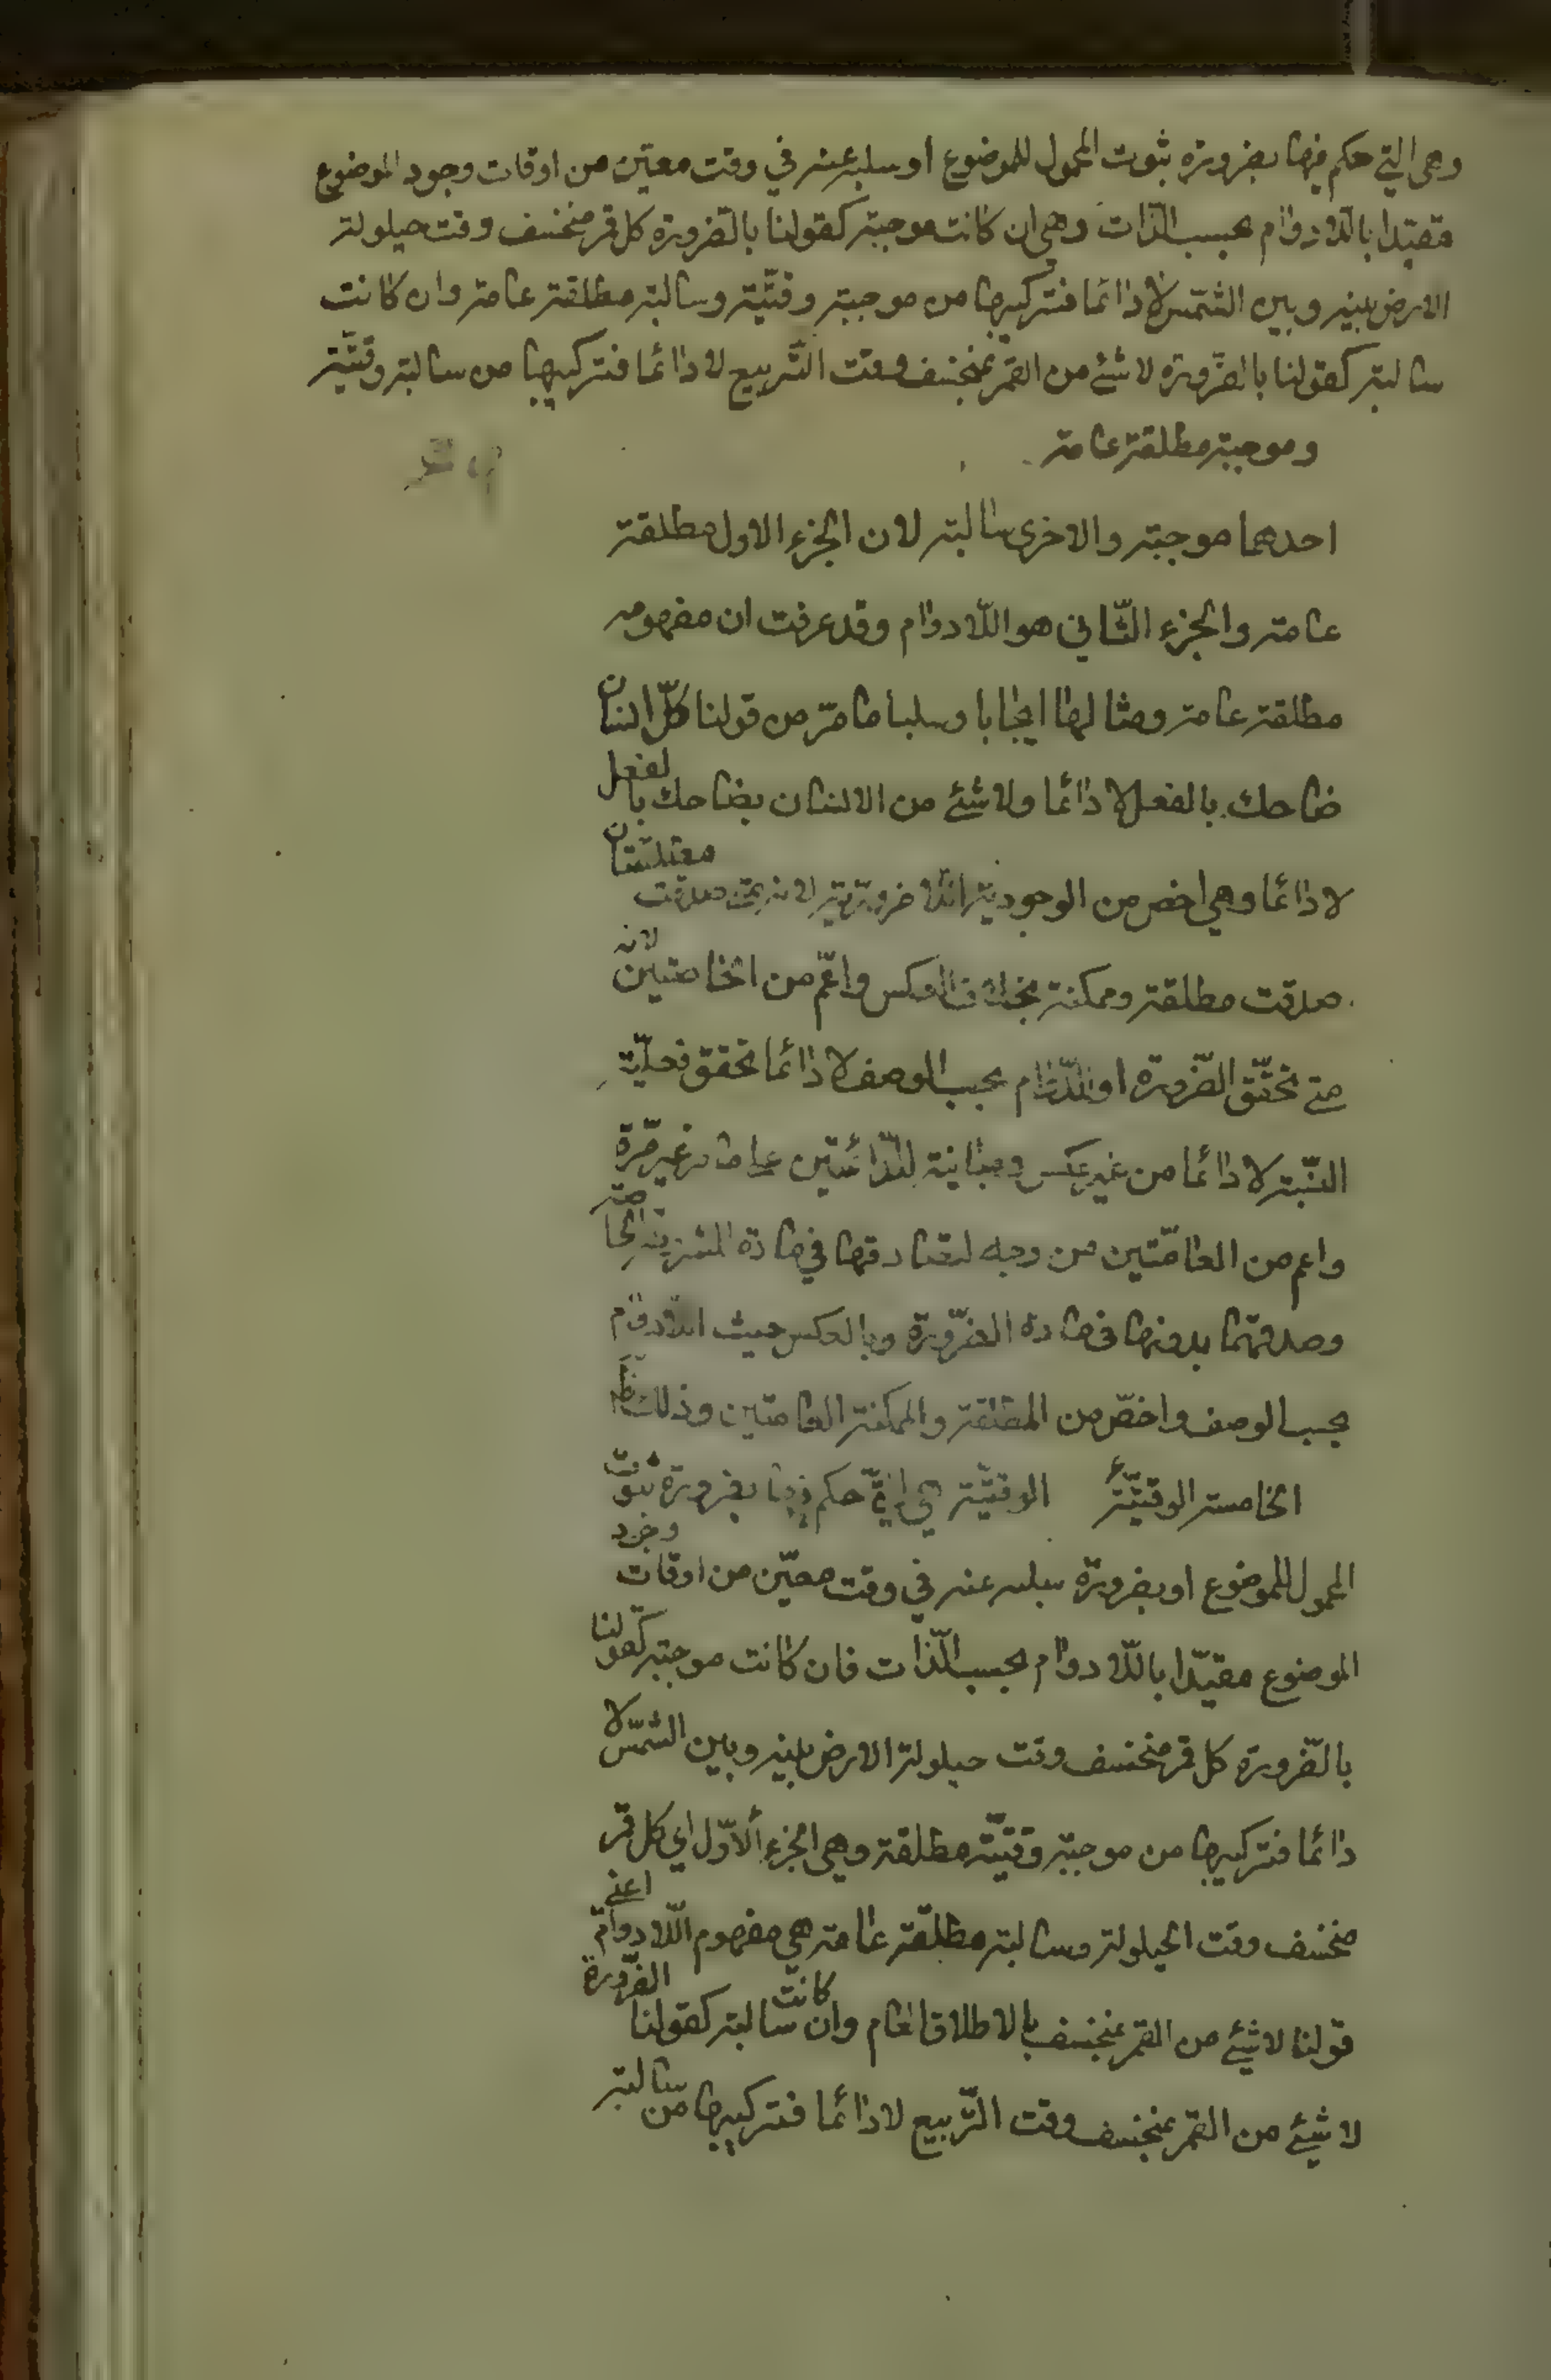 وهى التي حكم فيها بضرورة ثبوت المحمول للموضوع او سلبه عنه في وقت معين من اوقات وجود الموضوع
مقيدا باللا دوام بحسب الذات وهي ان كانت موجبة كقولنا بالضرورة كل قمر منخسف وقت حيلولة
الارض بينه وبين الشمس لا دائما فتركيبها من موجبة وقتية وسالبة مطلقة عامة وان كانت
سالبة كقولنا بالضرورة لا شئ من القمر بمنخسف وقت التربيع لا دائما فتركيبها من سالبة وقتية
وموجبة مطلقة عامة
احدهما موجبة والاخرى سالبة لان الجزء الاول مطلقة
عامة والجزء الثاني هو اللا دوام وقد عرفت ان مفهومه
مطلقة عامة ومثالها ايجابا وسلبا ما مر من قولنا كل انسان
ضاحك بالفعل لا دائما ولا شئ من الانسان بضاحك بالفعل
لا دائما وهي اخص من الوجودية اللا ضرورية لانه متى صدقت مطلقتان
صدقت مطلقة وممكنة بخلاف العكس واعم من الخاصتين لانه
متى تحقق الضرورة او الدوام بحسب الوصف لا دائما تحقق فعلية
النسبة لا دائما من غير عكس ومباينة للدائمتين على ما مر غير مرة
واعم من العامتين من وجه لتصادقها في مادة المشروطة الخاصة
وصدقهما بدونها في مادة الضرورة وبالعكس حيث اللا دوام
بحسب الوصف واخص من المطلقة والممكنة العامتين وذلك ظ
الخامسة الوقتية الوقتية هي التي حكم فيها بضرورة ثبوت
المحمول للموضوع او بضرورة سلبه عنه في وقت معين من اوقات وجود
الموضوع مقيدا باللا دوام بحسب الذات فان كانت موجبة كقولنا
بالضرورة كل قمر منخسف وقت حيلولة الارض بينه وبين الشمس لا
دائما فتركيبها من موجبة وقتية مطلقة وهي الجزء الاول اي كل قمر
منخسف وقت الحيلولة وسالبة مطلقة عامة هي مفهوم اللا دوام اعني
قولنا لا شئ من القمر بمنخسف بالاطلاق العام وان كانت سالبة كقولنا الضرورة
لا شئ من القمر بمنخسف وقت التربيع لا دائما فتركيبها من سالبة